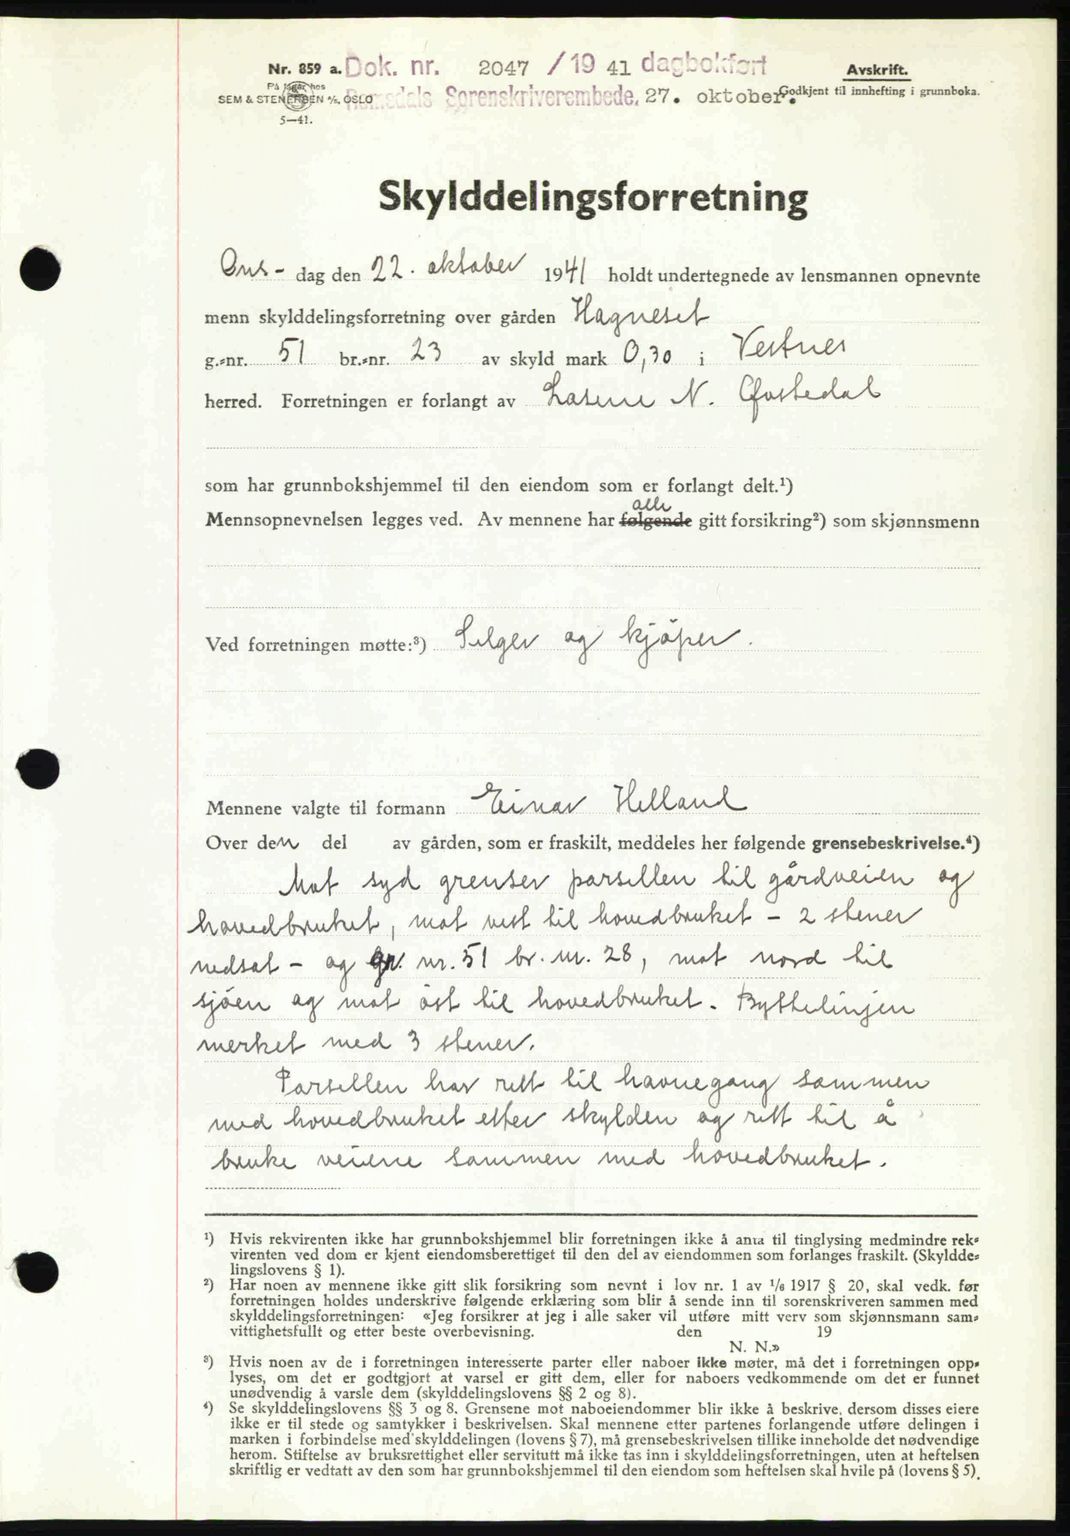 Nr. 859 a. Dok. nr. 2047 / 19 41 dagbokført
Avskrift.
På lager hos
SEM & STENERSEN A/S, OSLO
Romsdals Sorenskriverembede, 27. oktober.
Godkjent til innhefting i grunnboka.
5—41.
Skylddelingsforretning
Ons- dag den 22. oktober 1941 holdt undertegnede av lensmannen opnevnte
menn skylddelingsforretning over gården Hagneset
g.-nr. 51 br.-nr. 23 av skyld mark 0,30 i Vestnes
herred. Forretningen er forlangt av N.
som har grunnbokshjemmel til den eiendom som er forlangt delt.¹)
Mennsopnevnelsen legges ved. Av mennene har følgende alle gitt forsikring²) som skjønnsmenn
Ved forretningen møtte:³) Selger og kjöper.
Mennene valgte til formann Einar Helland
Over den del av gården, som er fraskilt, meddeles her følgende grensebeskrivelse.⁴)
Mot syd grenser parsellen til gårdveien og
hovedbruket, mot vest til hovedbruket - 2 stener
nedsat - og gr. nr. 51 br. nr. 28, mot nord til
sjöen og mot öst til hovedbruket. Byttelinjen
merket med 3 stener.
Parsellen har rett til havnegang sammen
med hovedbruket etter skylden og rett til å
bruke veiene sammen med hovedbruket.
¹) Hvis rekvirenten ikke har grunnbokshjemmel blir forretningen ikke å anta til tinglysing medmindre rek-
virenten ved dom er kjent eiendomsberettiget til den del av eiendommen som forlanges fraskilt. (Skyldde-
lingslovens § 1).
²) Har noen av mennene ikke gitt slik forsikring som nevnt i lov nr. 1 av 1/6 1917 § 20, skal vedk. før
forretningen holdes underskrive følgende erklæring som blir å sende inn til sorenskriveren sammen med
skylddelingsforretningen: «Jeg forsikrer at jeg i alle saker vil utføre mitt verv som skjønnsmann sam-
vittighetsfullt og etter beste overbevisning. den 19
N. N.»
³) Hvis noen av de i forretningen interesserte parter eller naboer ikke møter, må det i forretningen opp-
lyses, om det er godtgjort at varsel er gitt dem, eller for naboers vedkommende om det er funnet
unødvendig å varsle dem (skylddelingslovens §§ 2 og 8).
⁴) Se skylddelingslovens §§ 3 og 8. Grensene mot naboeiendommer blir ikke å beskrive, dersom disses eiere
ikke er til stede og samtykker i beskrivelsen. Skal mennene etter partenes forlangende utføre delingen i
marken i forbindelse med skylddelingen (lovens § 7), må grensebeskrivelsen tillike inneholde det nødvendige
herom. Stiftelse av bruksrettighet eller servitutt må ikke tas inn i skylddelingsforretningen, uten at heftelsen
skriftlig er vedtatt av den som har grunnbokshjemmel til den eiendom som heftelsen skal hvile på (lovens § 5).